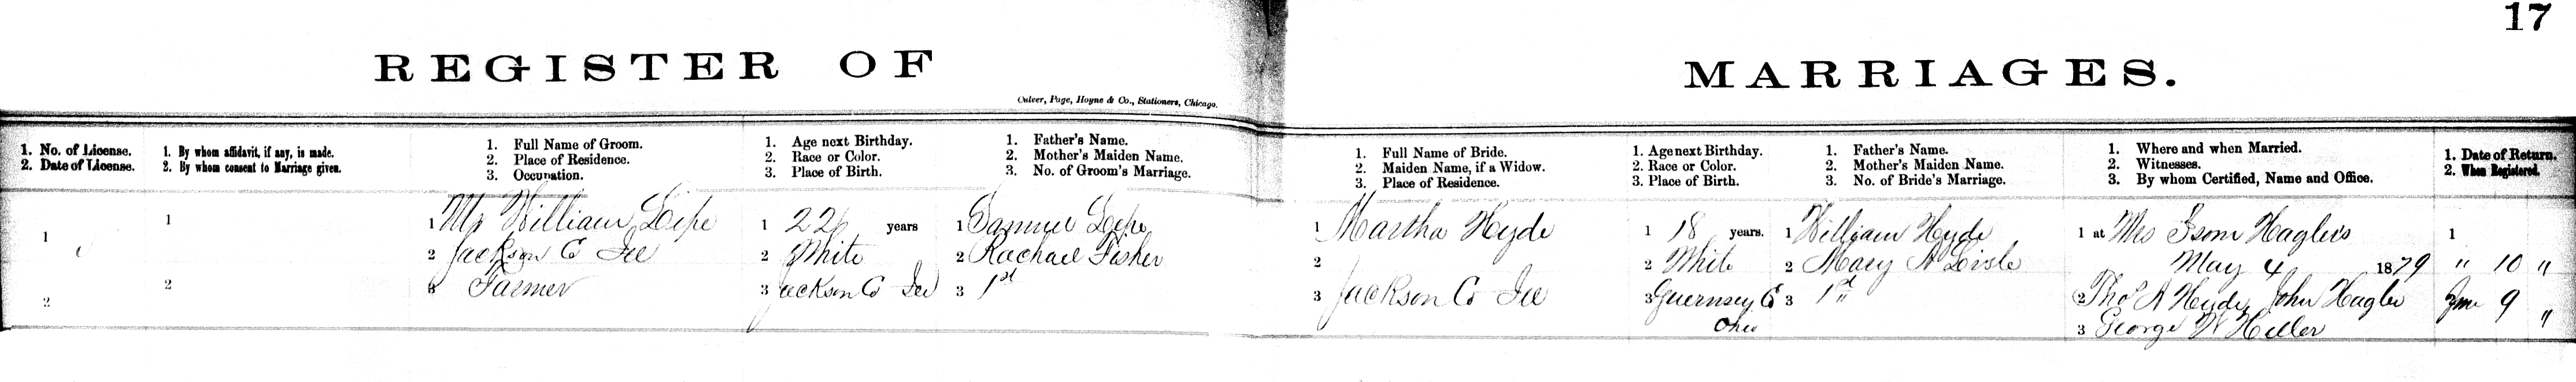 17
REGISTER OF MARRIAGES.
Culver, Page, Hoyne & Co., Stationers, Chicago.
1. No. of License.
2. Date of License.
1. By whom affidavit, if any, is made.
2. By whom consent to Marriage given.
1. Full Name of Groom.
2. Place of Residence.
3. Occupation.
1. Age next Birthday.
2. Race or Color.
3. Place of Birth.
1. Father's Name.
2. Mother's Maiden Name.
3. No. of Groom's Marriage.
1. Full Name of Bride.
2. Maiden Name, if a Widow.
3. Place of Residence.
1. Age next Birthday.
2. Race or Color.
3. Place of Birth.
1. Father's Name.
2. Mother's Maiden Name.
3. No. of Bride's Marriage.
1. Where and when Married.
2. Witnesses.
3. By whom Certified, Name and Office.
1. Date of Return.
2. When Registered.
1
2
1
2
1 Mr William Lipe
2 Jackson Co Ill
3 Farmer
1 22 years
2 White
3 Jackson Co Ill
1 Samuel Lipe
2 Rachael Fisher
3 1st
1 Martha Hyde
2
3 Jackson Co Ill
1 18 years.
2 White
3 Guernsey Co
Ohio
1 William Hyde
2 Mary A Lisle
3 1st
1 at Mrs Isom Haglers
May 4 1879
2 Thos A Hyde, John Hagler
3 George W Hiller
1
" 10 "
June 9 "